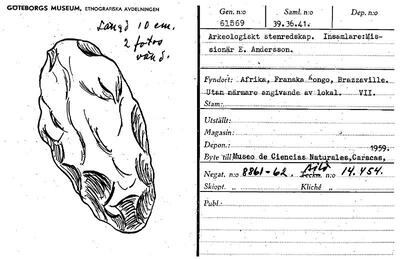 GÖTEBORGS MUSEUM, ETNOGRAFISKA AVDELNINGEN
Längd 10 cm.
2 foton
vänd.
Gen. n:o
61569
Saml. n:o
39.36.41.
Dep. n:o
Arkeologiskt stenredskap. Insamlare:Mis-
sionär E. Andersson.
Fyndort: Afrika, Franska Kongo, Brazzaville.
Utan närmare angivande av lokal. VII.
Stam:
Utställt:
Magasin:
Depon.: 1959.
Byte till Museo de Ciencias Naturales, Caracas,
Negat. n:o 8861-62. Bild n:o 14.454.
Skiopt. „ Kliché „
Publ.: